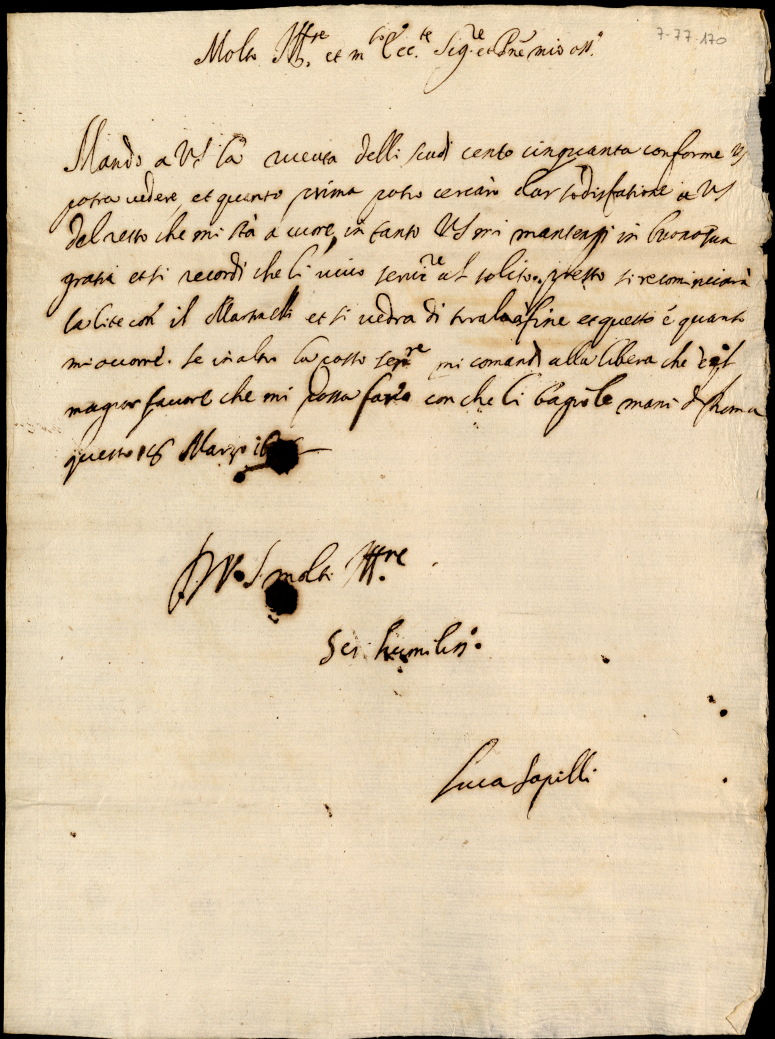 7-77-170
Molto Ill.re et m.to Ecc.te Sig.re et Pne mio oss.o
Mando a VS la riceuta delli scudi cento cinquanta conforme VS
potra vedere, et quanto prima potro cercarò dar sodisfatione a VS
del resto che mi stà a cuore, in tanto VS mi mantenghi in buona sua
gratia et si recordi che li vivo ser.re al solito. presto si recominciarà
la lite con il et si vedra di tirarla a fine et questo è quanto
mi occorre. Se in altro la posso ser.re mi comandi alla libera che è il
magior favore che mi possa fare con che li bagio le mani di Roma
questo 16 Marzo 16
D V. S. molto Ill.re
Ser. humiliss.o
Luca